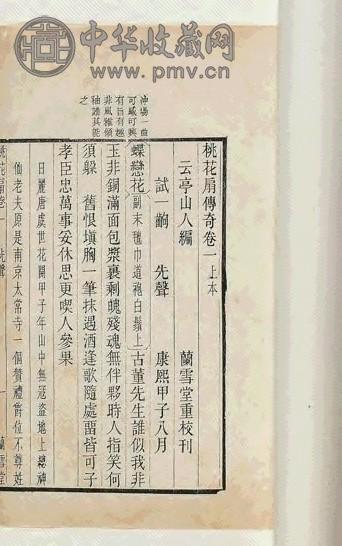 中华收藏网
www.pmv.cn
沖場一曲
可感可興
有旨有趣
非風雅領
袖誰其能
之
桃花扇傳奇卷一上本
云亭山人編 蘭雪堂重校刊
試一齣 先聲 康熙甲子八月
蝶戀花 副末氊巾道袍白鬚上 古董先生誰似我非
玉非銅滿面包漿裹剩魄殘魂無伴夥時人指笑何
須躲 舊恨塡胸一筆抹遇酒逢歌隨處畱皆可子
孝臣忠萬事妥休思更喫人參果
日麗唐虞世花開甲子年山中無寇盜地上總神
仙老夫原是南京太常寺一個贊禮爵位不尊姓
桃花扇卷一 先聲 一 蘭雪堂